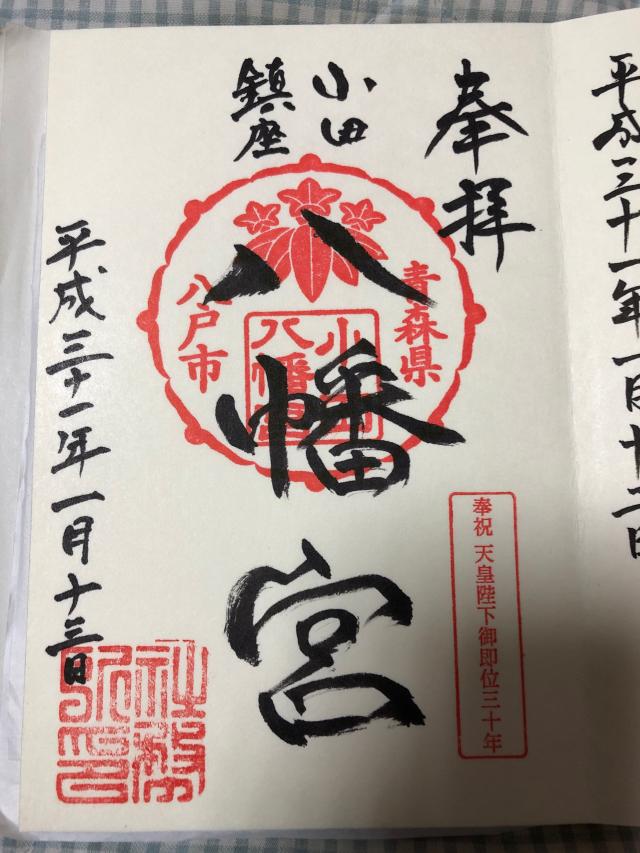 平成三十一年一月十二日
奉拝
奉祝 天皇陛下御即位三十年
小田
鎮座
八幡宮
青森県
八戸市
小田
八幡宮
平成三十一年一月十三日
社務
所印